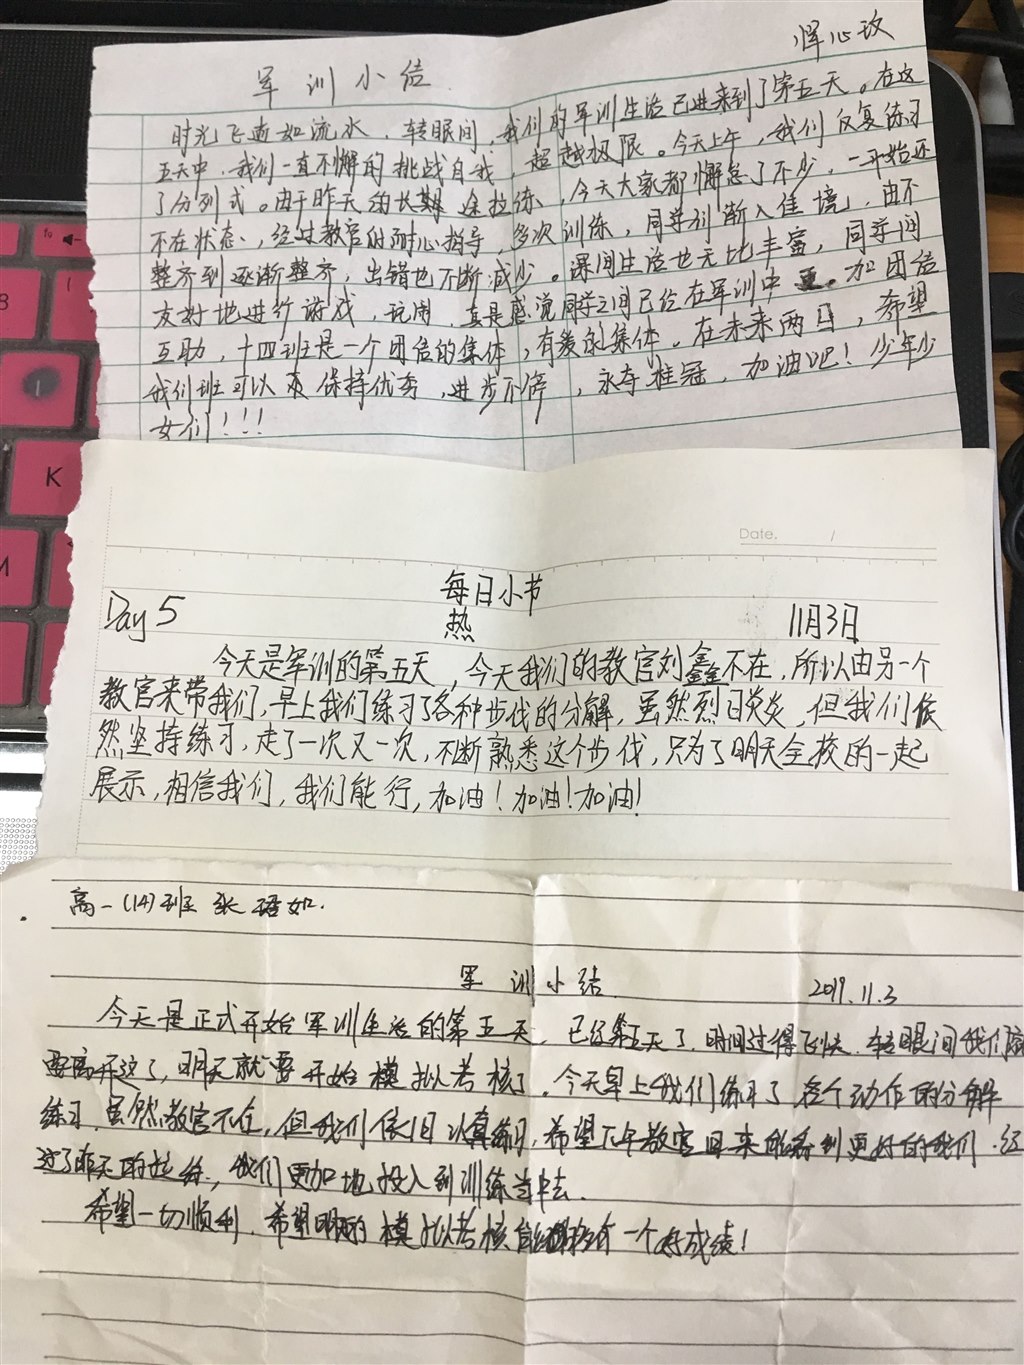 恽心玫
军训小结
时光飞逝如流水，转眼间，我们的军训生活已进来到了第五天。在这
五天中，我们一直不懈的挑战自我，超越极限。今天上午，我们反复练习
了分列式。由于昨天的长期途拉练，今天大家都懈怠了不少，一开始还
不在状态，经过教官的耐心指导，多次训练，同学们渐入佳境，由不
整齐到逐渐整齐，出错也不断减少。课间生活也无比丰富，同学间
友好地进行游戏，玩闹，真是感觉同学之间已经在军训中更加团结
互助，十四班是一个团结的集体，有爱的集体。在未来两日，希望
我们班可以保持优秀，进步不停，永夺桂冠，加油吧！少年少
女们！！！
Date. /
每日小节
Day 5 热 11月3日
今天是军训的第五天，今天我们的教官刘鑫不在，所以由另一个
教官来带我们，早上我们练习了各种步伐的分解，虽然烈日炎炎，但我们依
然坚持练习，走了一次又一次，不断熟悉这个步伐，只为了明天全校的一起
展示，相信我们，我们能行，加油！加油！加油！
高一（14）班 张语如.
军训小结 2019.11.3
今天是正式开始军训生活的第五天，已经第五天了，时间过得飞快，转眼间我们
要离开这了，明天就要开始模拟考核了。今天早上我们练习了各个动作的分解
练习，虽然教官不在，但我们依旧认真练习，希望下午教官回来能看到更好的我们，经
过了昨天的拉练，我们更加地投入到训练当中去.
希望一切顺利，希望明天的模拟考核能有一个好成绩！
K
M
8